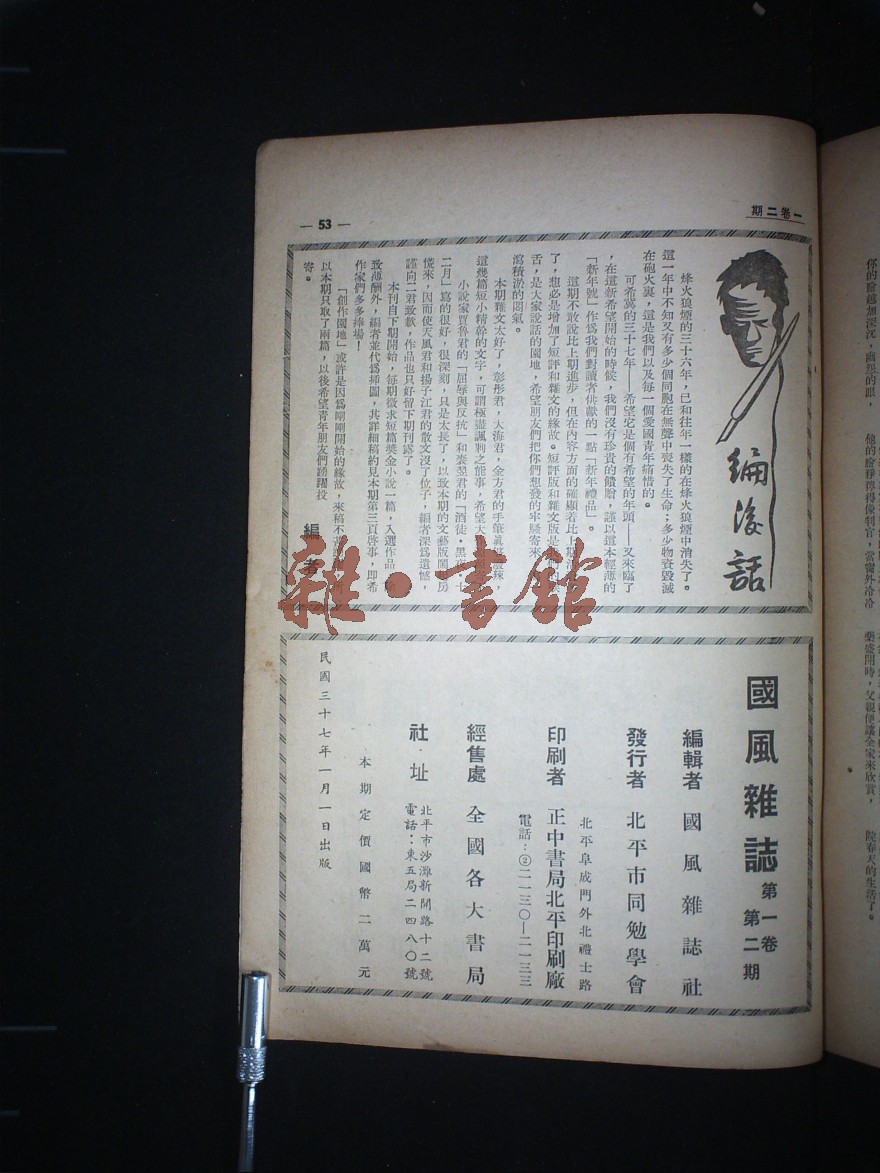 一卷二期
— 53 —
編後話
烽火狼煙的三十六年，已和往年一樣的在烽火狼煙中消失了。
這一年中不知又有多少個同胞在無聲中喪失了生命；多少物資毀滅
在砲火裏，這是我們以及每一個愛國青年痛惜的。
可希冀的三十七年——希望它是個有希望的年頭——又來臨了
，在這新希望開始的時候，我們沒有珍貴的饋贈，謹以這本輕薄的
「新年號」作為我們對讀者供獻的一點「新年禮品」。
這期不敢說比上期進步，但在內容方面的確顯着比上期
了，想必是增加了短評和雜文的緣故。短評版和雜文版是
舌，是大家說話的園地，希望朋友們把你們想發的牢騷寄來
瀉積淤的悶氣。
本期雜文太好了，彰彤君，大海君，金方君的手筆真
辣，
這幾篇短小精幹的文字，可謂極盡諷刺之能事，希望大
小說家賈魯君的「屈辱與反抗」和裴翌君的「酒徒·黑
·十
二月」寫的很好，很深刻，只是太長了，以致本期的文藝版鬧
房
慌來，因而使天風君和揚子江君的散文沒了位子，編者深為遺憾，
謹向二君致歉，作品也只好留下期刊露了。
本刊自下期開始，每期徵求短篇獎金小說一篇，入選作品
致薄酬外，編者並代為插圖，其詳細稿約見本期第三頁啓事，即希
作家們多多捧場！
「創作園地」或許是因為剛剛開始的緣故，來稿不
以本期只取了兩篇，以後希望青年朋友們踴躍投
寄。
編者
國風雜誌 第一卷 第二期
編輯者 國風雜誌社
發行者 北平市同勉學會
北平阜成門外北禮士路
印刷者 正中書局北平印刷廠
電話：②二一三〇—二一三三
經售處 全國各大書局
社·址 北平市沙灘新開路十二號
電話：東五局二四八〇號
本期定價國幣二萬元
民國三十七年一月一日出版
雜·書館
你的臉越加深沉，幽怨的眼，
他的臉靜得像判官，當窗外冷冷
藥盛開時，父親便讓全家來欣賞，
院春天的生活了。